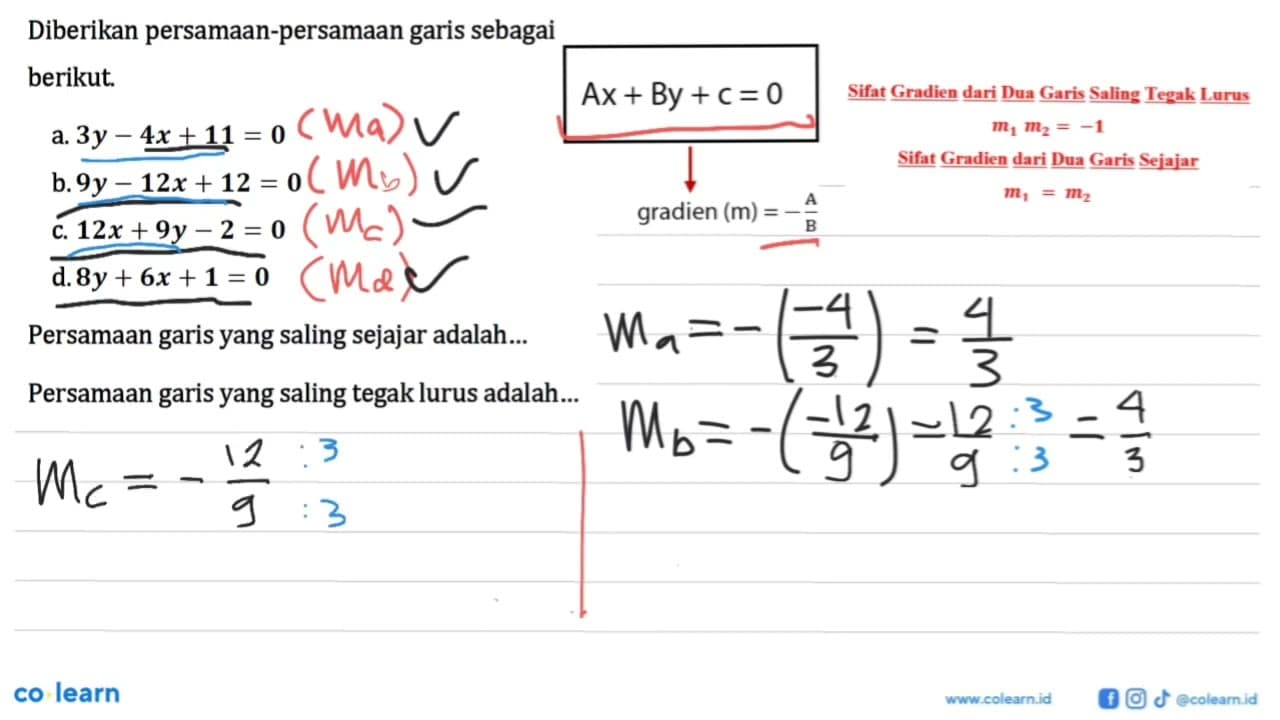 Diberikan persamaan-persamaan garis sebagai
berikut.
a. 3y − 4x + 11 = 0 (ma)
b. 9y − 12x + 12 = 0 (mb)
c. 12x + 9y − 2 = 0 (mc)
d. 8y + 6x + 1 = 0 (md)
Persamaan garis yang saling sejajar adalah...
Persamaan garis yang saling tegak lurus adalah...
Ax + By + c = 0
gradien (m) = − A/B
Sifat Gradien dari Dua Garis Saling Tegak Lurus
m₁ m₂ = −1
Sifat Gradien dari Dua Garis Sejajar
m₁ = m₂
ma = −(−4/3) = 4/3
mb = −(−12/9) = 12/9 :3 :3 = 4/3
mc = − 12/9 :3 :3
co learn
www.colearn.id
@colearn.id